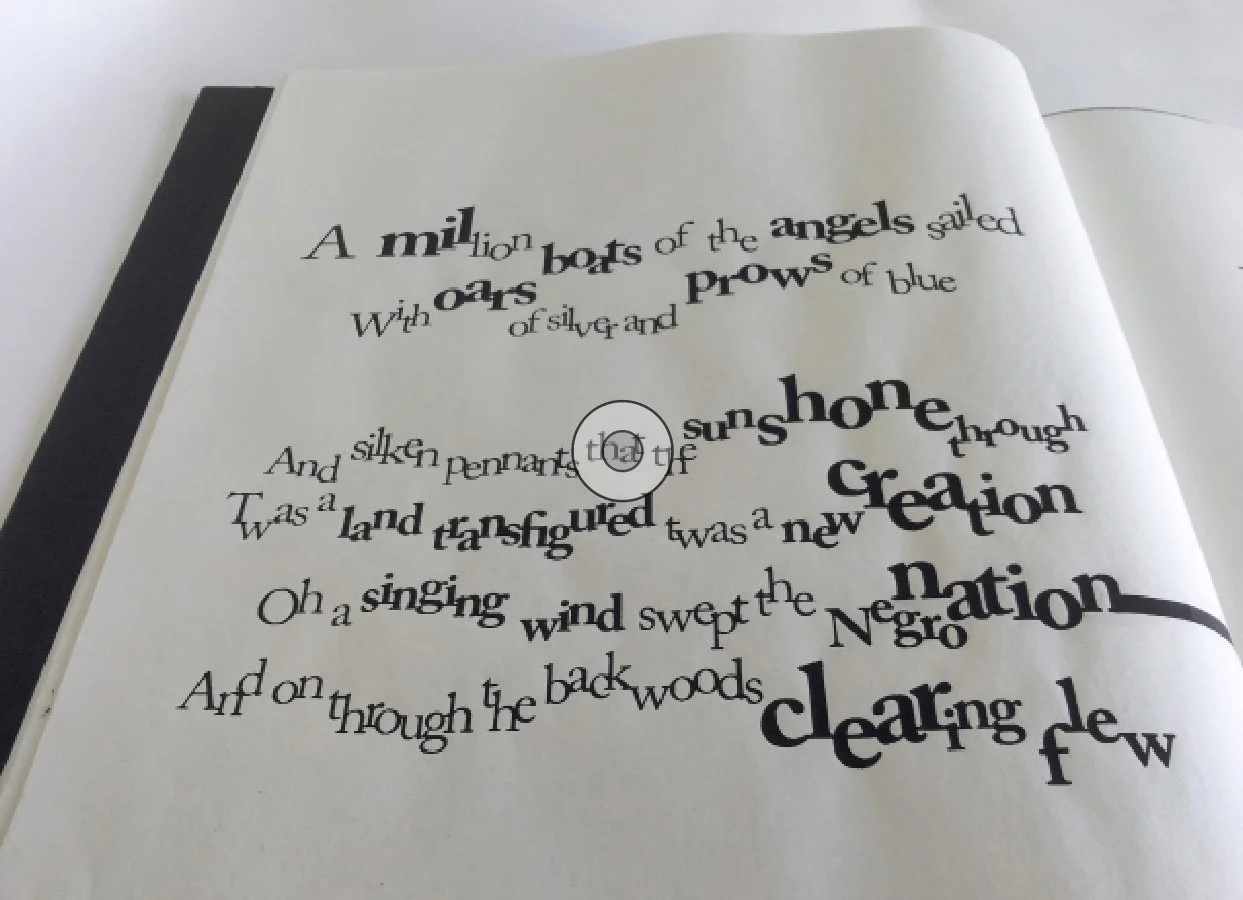 A million boats of the angels sailed
With oars of silver and prows of blue
And silken pennants that the sun shone through
Twas a land transfigured twas a new creation
Oh a singing wind swept the Negro nation
And on through the backwoods clearing flew